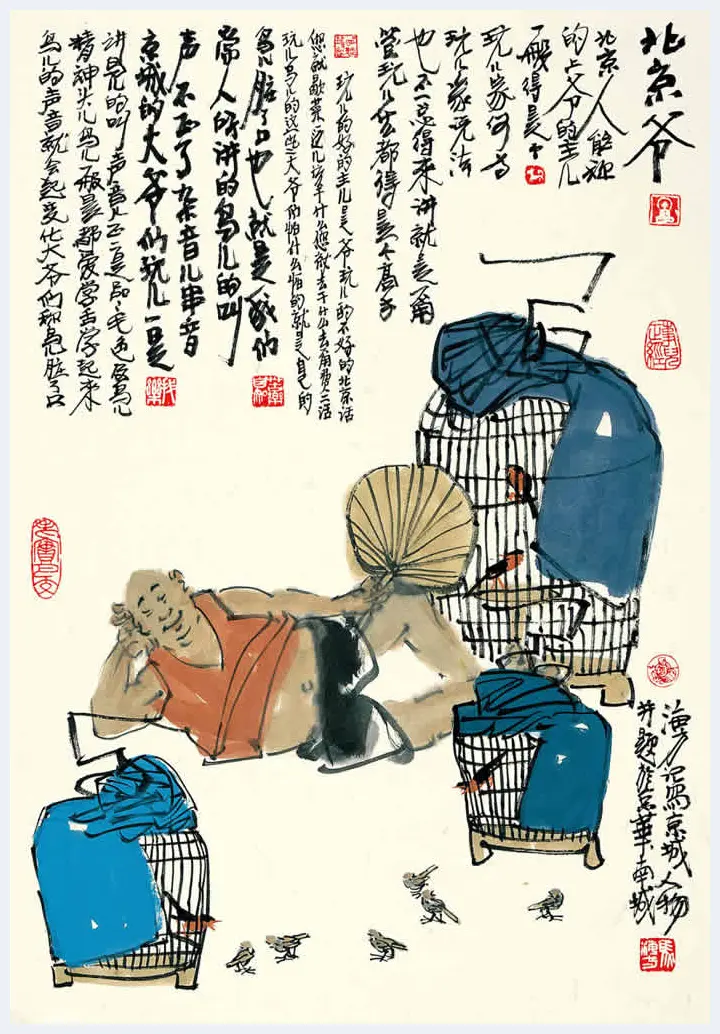 北京爷
北京人能称
的上爷的主儿
一般得是个
玩儿家何为
玩儿家说法
也不一总得来讲就是甭
管玩儿什么都得是个高手
玩儿的好的主儿是爷玩儿的不好的北京话
您就歇菜该干什么您就去干什么去甭费二话
玩儿鸟儿的这些大爷们怕什么怕的就是自己的
鸟儿脏了口也就是我们
常人所讲的鸟儿的叫
声不正了杂音儿串音
京城的大爷们玩儿一是
讲鸟儿的叫声音正二是毛色后鸟儿
精神头儿鸟儿一般是都爱学舌学起来
鸟儿的声音就会起变化大爷们称鸟儿脏了口
海方记写京城人物
并题於京華南城